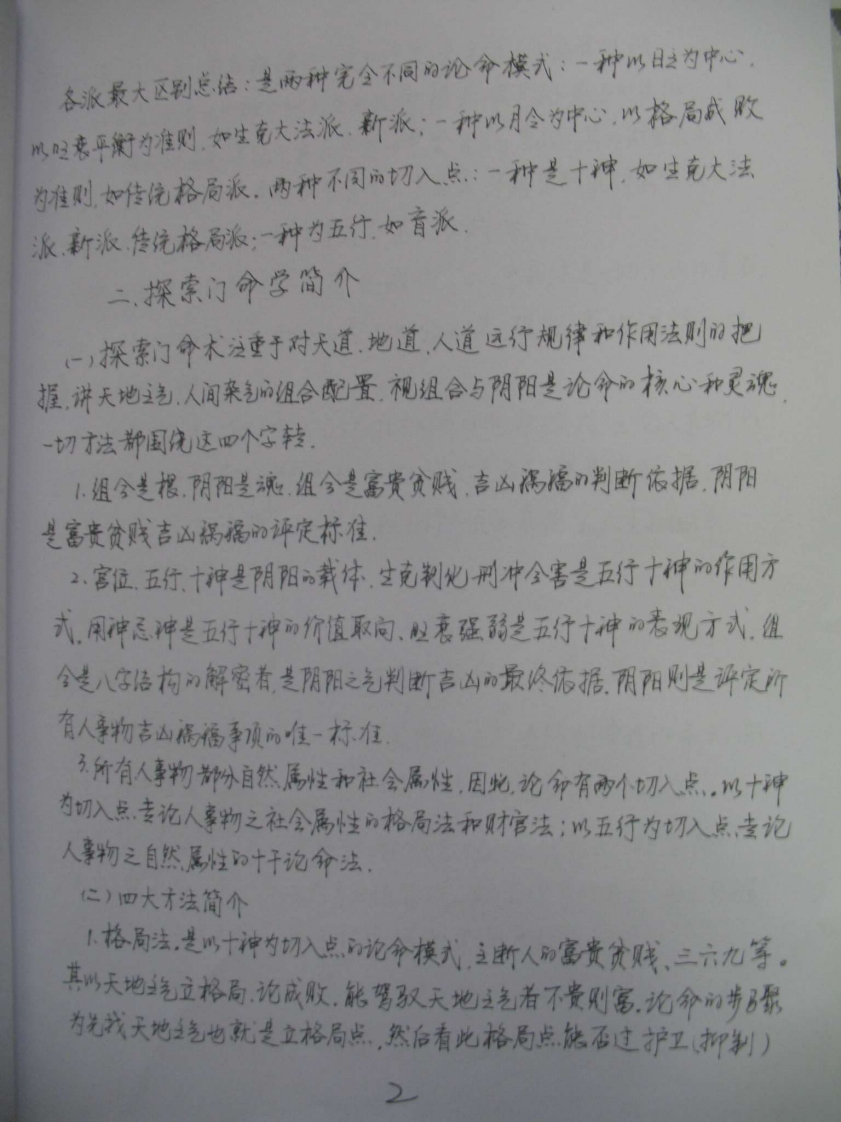 各派最大区别总结:是两种完全不同的论命模式:一种以日主为中心.
以旺衰平衡为准则.如生克大法派.新派;一种以月令为中心.以格局成败
为准则.如传统格局派.两种不同的切入点:一种是十神.如生克大法
派.新派.传统格局派;一种为五行.如盲派.
二.探索门命学简介
(一)探索门命术注重于对天道.地道.人道运行规律和作用法则的把
握.讲天地之气.人间杂气的组合配置.视组合与阴阳是论命的核心和灵魂.
一切方法都围绕这四个字转.
1.组合是根.阴阳是魂.组合是富贵贫贱.吉凶祸福的判断依据.阴阳
是富贵贫贱吉凶祸福的评定标准.
2.宫位.五行.十神是阴阳的载体.生克制化刑冲合害是五行十神的作用方
式.用神忌神是五行十神的价值取向.旺衰强弱是五行十神的表现方式.组
合是八字结构的解密者.是阴阳之气判断吉凶的最终依据.阴阳则是评定所
有人事物吉凶祸福事项的唯一标准.
3.所有人事物都分自然属性和社会属性.因此.论命有两个切入点。以十神
为切入点.专论人事物之社会属性的格局法和财官法;以五行为切入点.专论
人事物之自然属性的十干论命法.
(二)四大方法简介
1.格局法.是以十神为切入点的论命模式.主断人的富贵贫贱、三六九等。
其以天地之气立格局.论成败.能驾驭天地之气者不贵则富.论命的步骤
为先找天地之气也就是立格局点.然后看此格局点能否过护卫(抑制)
2